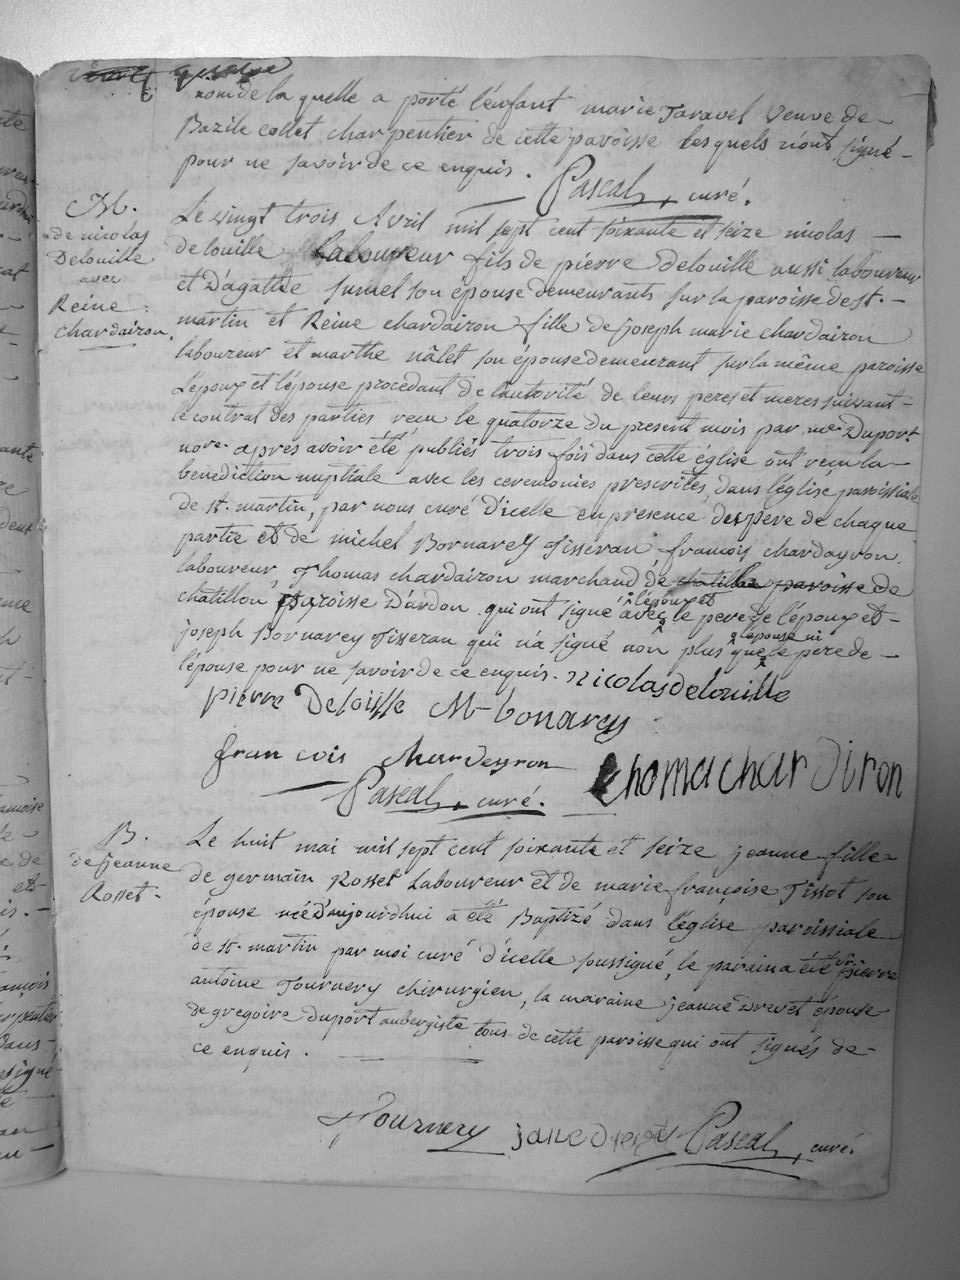 nom de la quelle a porté l'enfant marie Taravel veuve de
Bazile collet charpentier de cette paroisse lesquels n'ont signé
pour ne savoir de ce enquis.
Pascal, curé.
M.
de nicolas
Delouille
avec
Reine
chardairon
Le vingt trois Avril mil sept cent soixante et seize nicolas
delouille laboureur fils de pierre Delouille aussi laboureur
et D'agathe sumel son épouse demeurants sur la paroisse de st.
martin et Reine chardairon fille de joseph marie chardairon
laboureur et marthe nâlet son épouse demeurant sur la même paroisse
l'époux et l'épouse procedant de l'autorité de leurs peres et meres suivant
le contrat des parties recu le quatorze du present mois par me. Duport
nore. apres avoir été publiés trois fois dans cette église ont recu la
benediction nuptiale avec les ceremonies prescrites, dans l'église paroissiale
de st. martin, par nous curé d'icelle en presence des pere de chaque
partie et de michel Bornarey Tisseran françois chardayron
laboureur, Thomas chardairon marchand de paroisse de
chatillon paroisse D'ardon qui ont signé avec l'époux et le pere de l'époux et
joseph Bornarey Tisseran qui n'a signé non plus que l'épouse ni le pere de
l'épouse pour ne savoir de ce enquis. Nicolas delouille
pierre Delouille M bonarey
francois chardeyron
thoma chardiron
Pascal, curé.
B.
de jeanne
Rosset.
Le huit mai mil sept cent soixante et seize jeanne fille
de germain Rosset Laboureur et de marie françoise Tissot son
épouse née d'aujourdhui a été Baptizé dans l'église paroissiale
de st. martin par moi curé d'icelle soussigné, le parain a été sr. pierre
antoine Tournery chirurgien, la maraine jeanne Drevet épouse
de gregoire duport aubergiste tous de cette paroisse qui ont signés de
ce enquis.
Tournery jane drevet Pascal, curé.